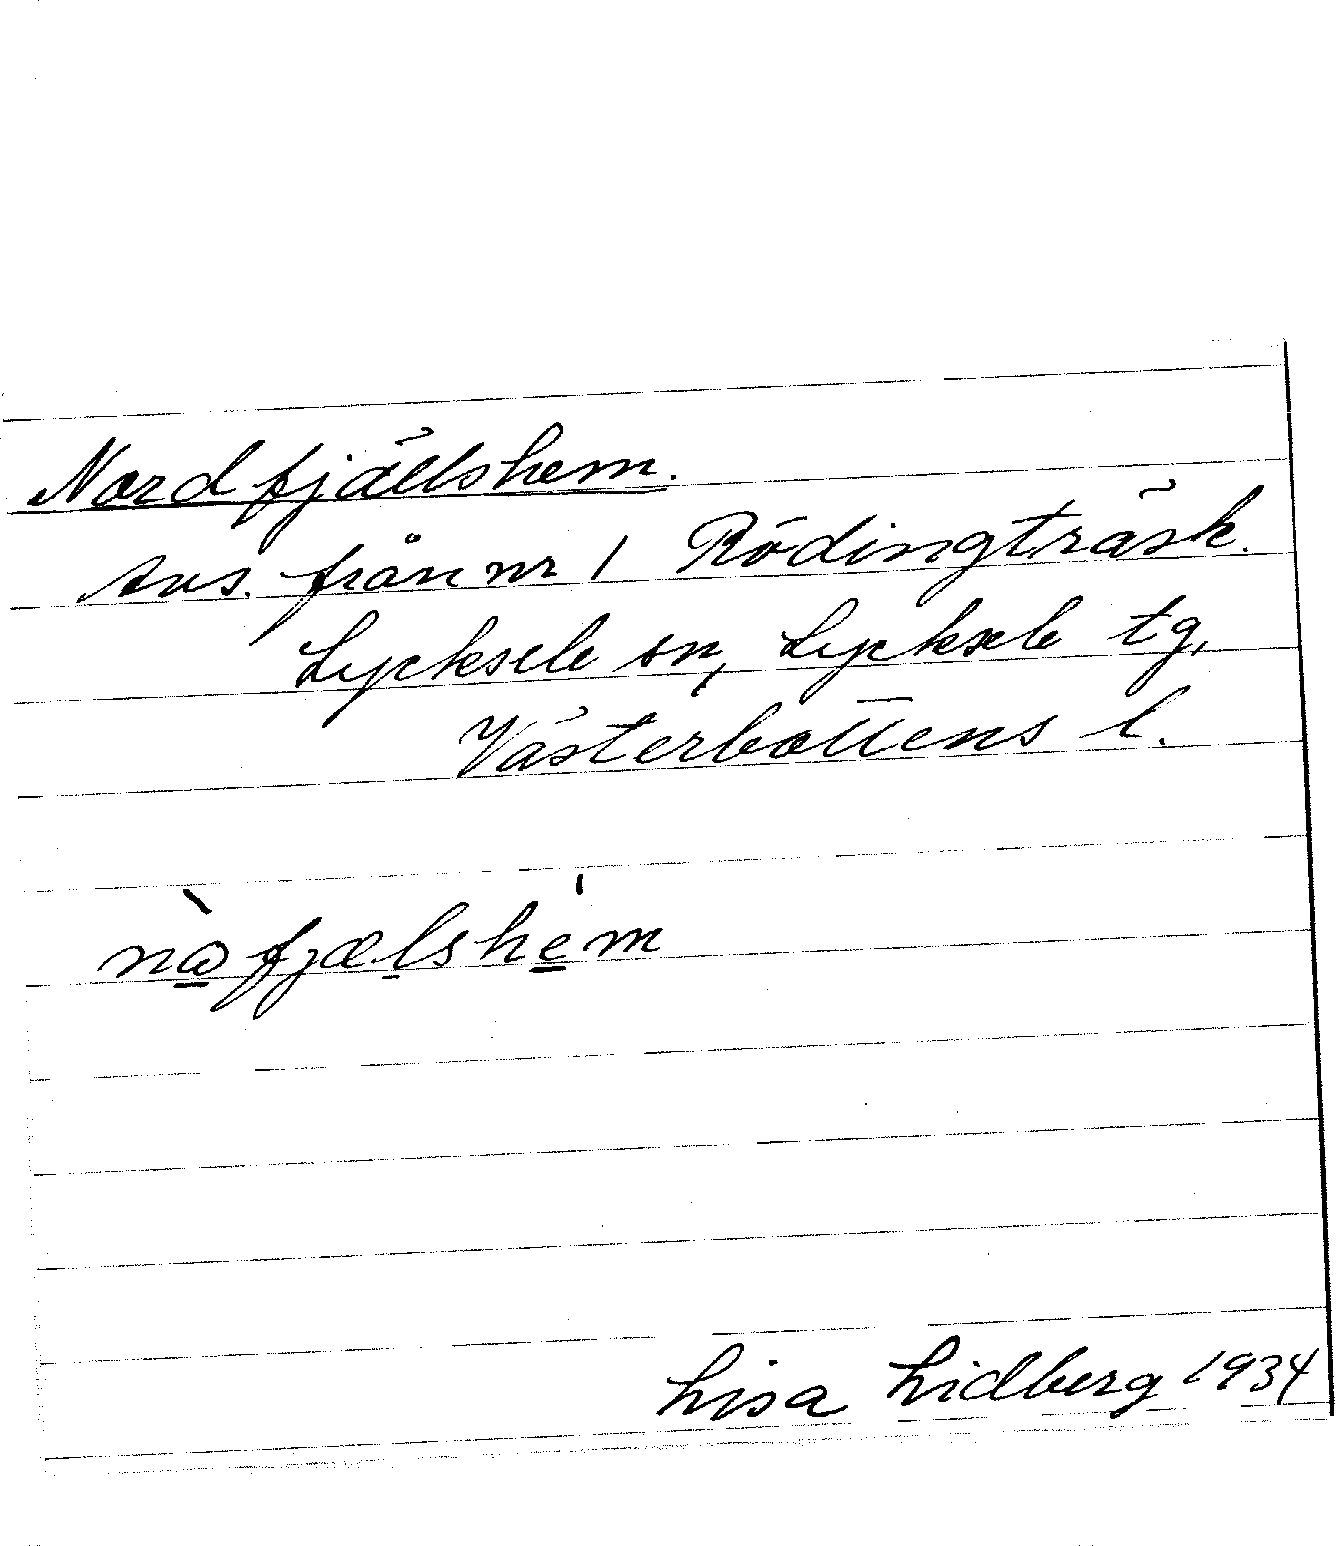 Nordfjällshem.
avs. från nr 1 Rödingträsk.
Lycksele sn, Lycksele tg,
Västerbottens l.
nàfjælshém
Lisa Lidberg 1934